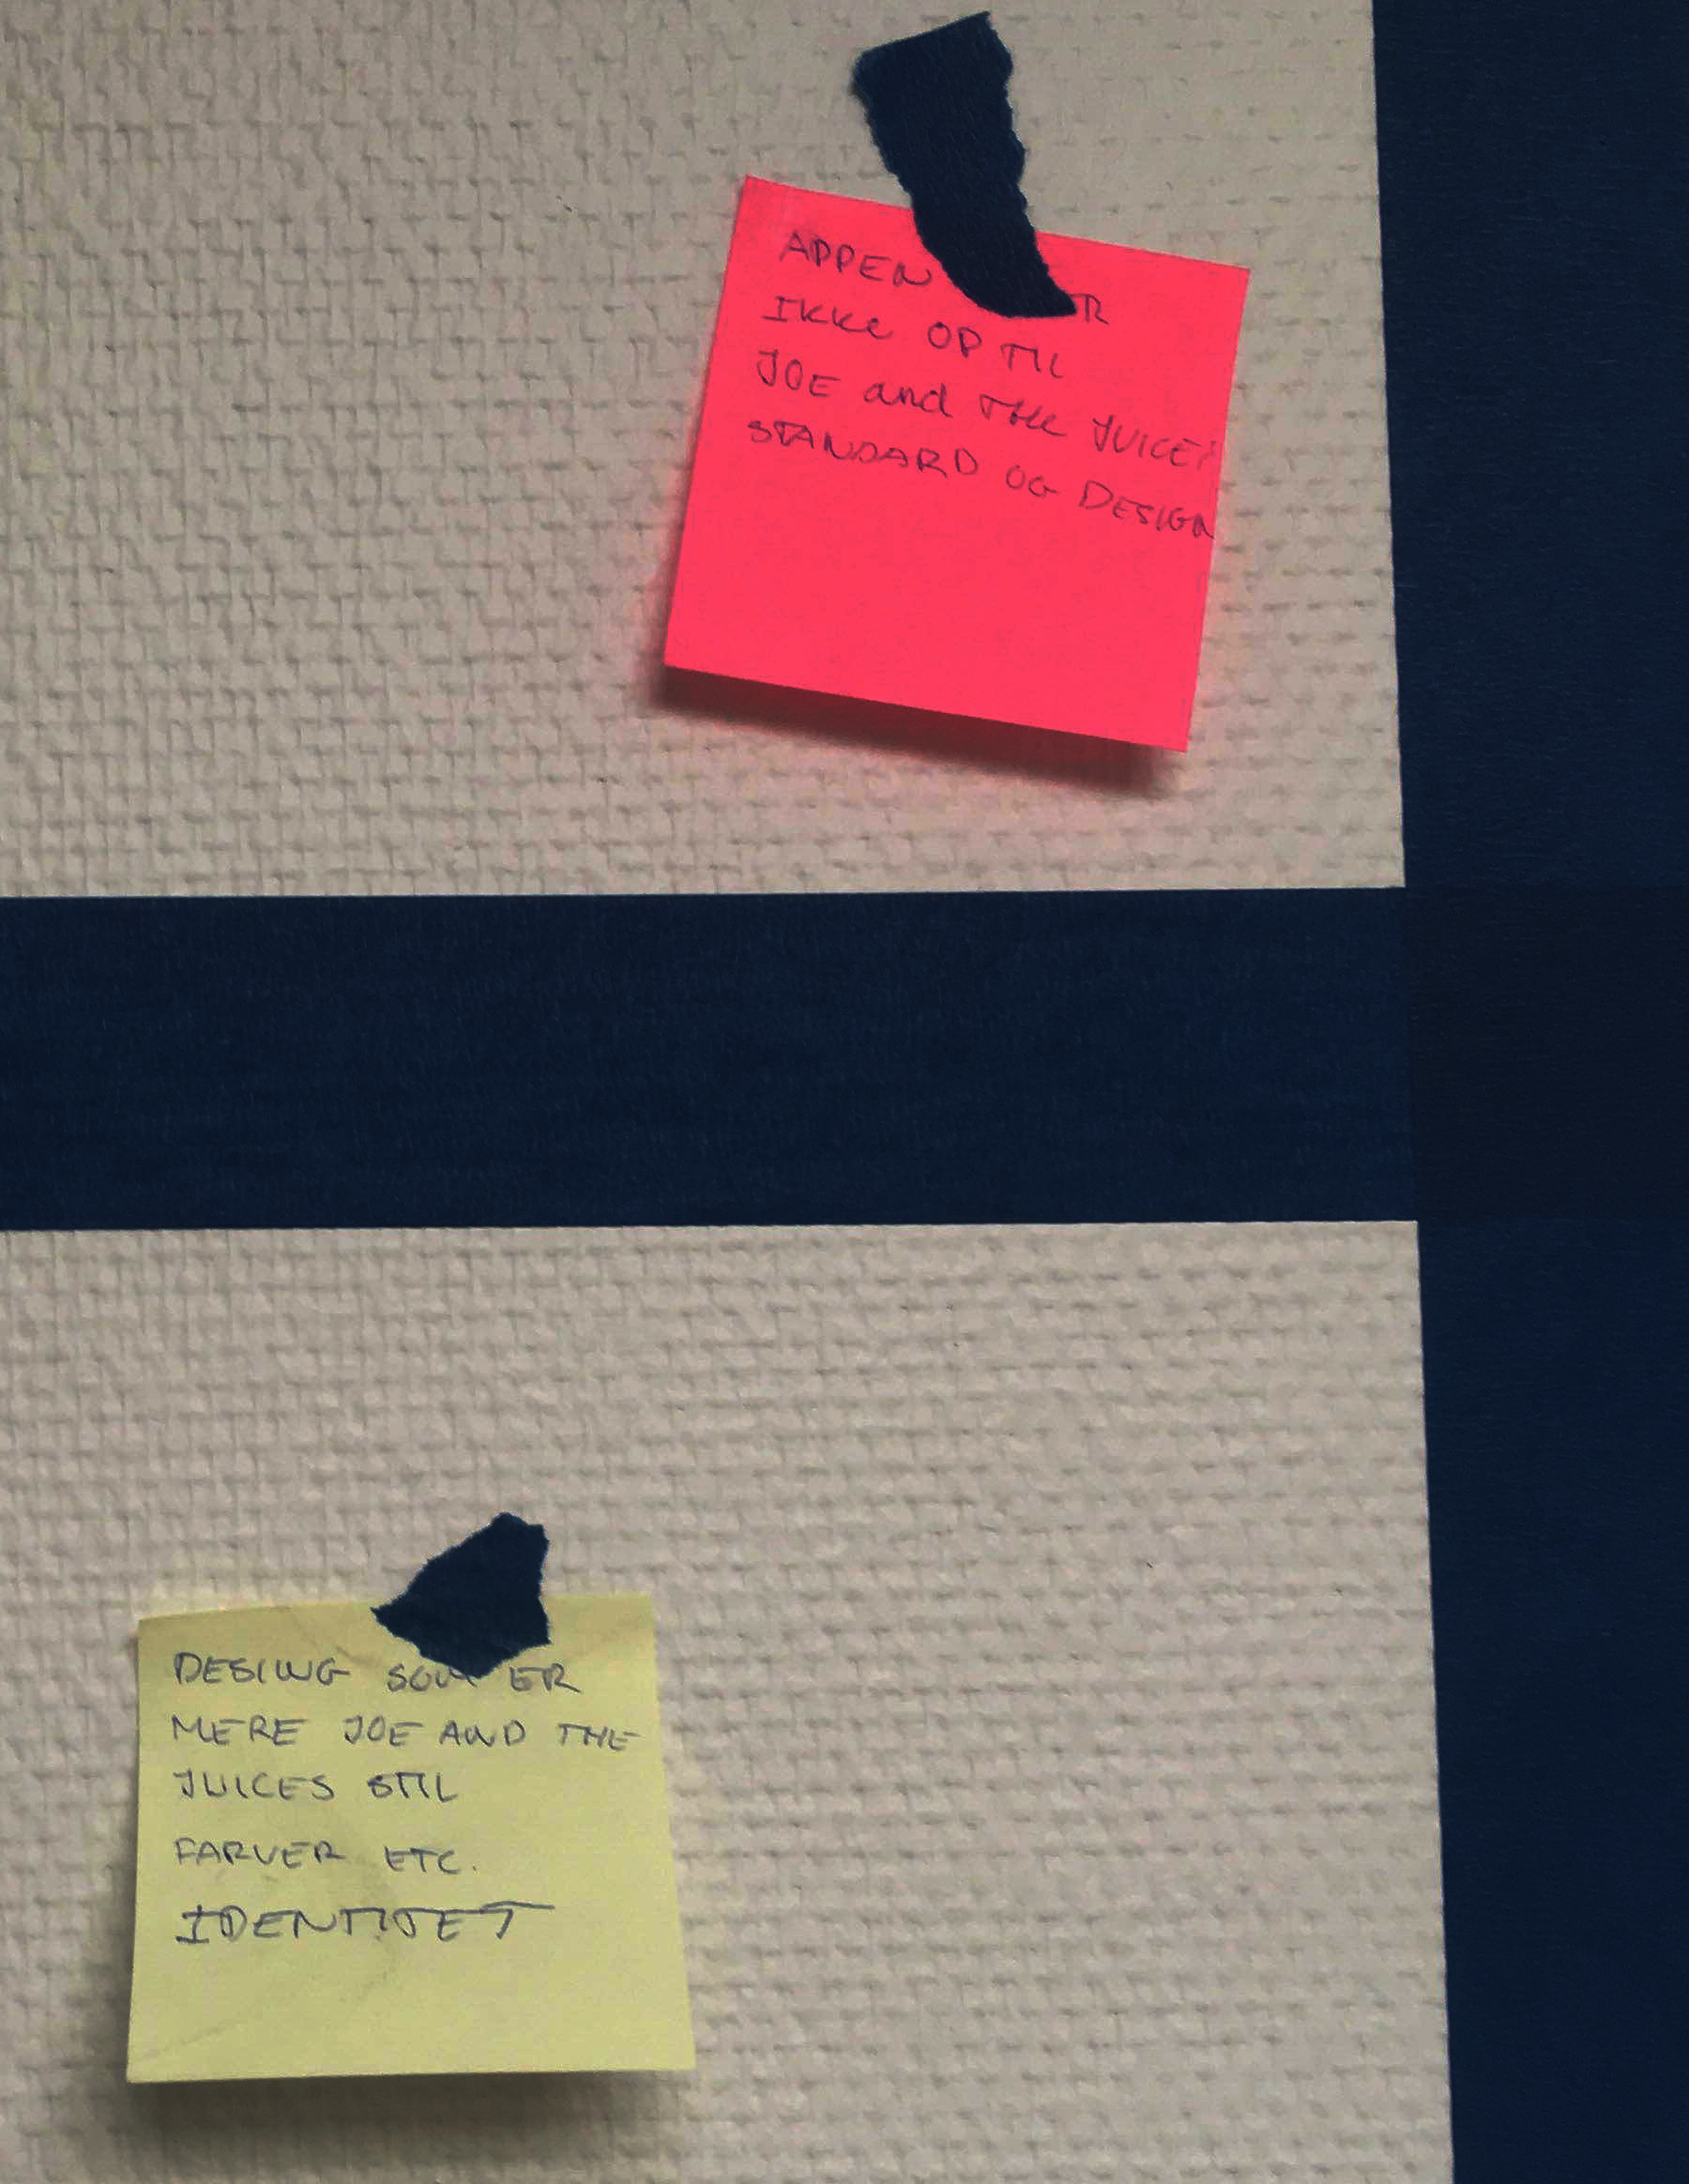 APPEN
IKKE OP TIL
JOE and THE JUICES
STANDARD OG DESIGN
DESIING SOM ER
MERE JOE AND THE
JUICES STIL
FARVER ETC.
IDENTITET